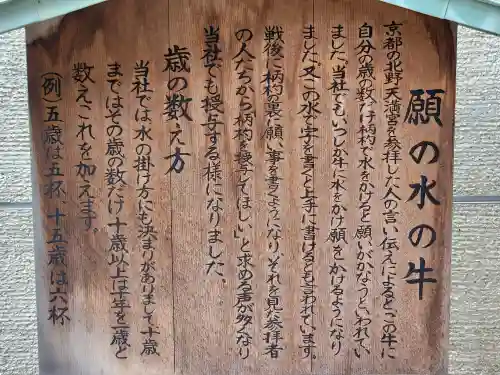 願の水の牛
京都の北野天満宮を参拝した人の言い伝えによると「この牛に
自分の歳の数だけ柄杓で水をかけると願いがかなう」といわれてい
ました。当社でもいつしか牛に水をかけ願をかけるようになり
ました。又この水で字を書くと上手に書けるとも言われています。
戦後に柄杓の裏に願い事を書くようになり、それを見た参拝者
の人たちから「柄杓を授与してほしい」と求める声が多くなり
当社でも授与する様になりました。
歳の数え方
当社では、水の掛け方にも決まりがありまして、十歳
まではその歳の数だけ、十歳以上は十年を一歳と
数え、これを加えます。
(例)五歳は五杯、十五歳は六杯